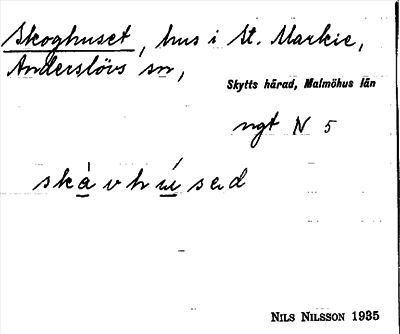 Skoghuset, hus i St. Markie,
Anderslövs sn,
Skytts härad, Malmöhus län
ngt N 5
skàvhúsad
NILS NILSSON 1935